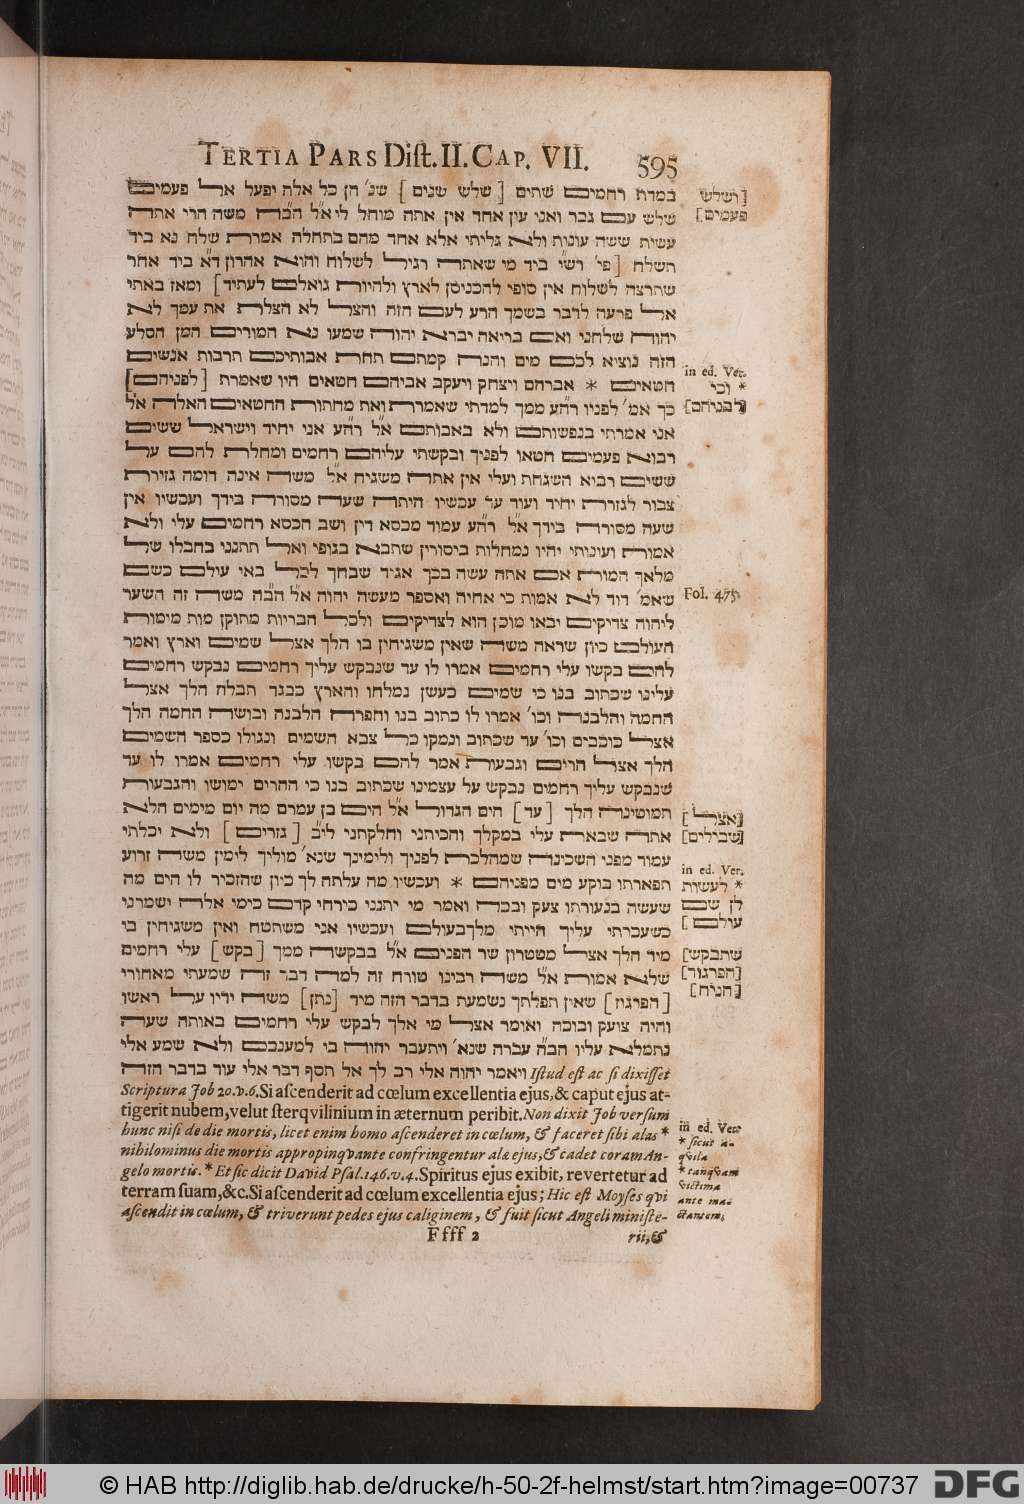 TERTIA PARS Dist. II. CAP. VII. 595
במדת רחמים שתים [שלש שנים] שנ׳ הן כל אלה יפעל אל פעמים
שלש עם גבר ואני עין אחד אין אתה מוחל לי א״ל הב״ה משה הרי אתה
עשית ששה עונות ולא גליתי אלא אחד מהם בתחלה אמרת שלח נא ביד
תשלח [פי׳ רש״י ביד מי שאתה רגיל לשלוח והוא אהרון ד״א ביד אחר
שתרצה לשלוח אין סופי להכניסן לארץ ולהיות גואלם לעתיד] ומאז באתי
אל פרעה לדבר בשמך הרע לעם הזה והצל לא הצלת את עמך לא
יהוה שלחני ואם בריאה יברא יהוה שמעו נא המורים המן הסלע
הזה נוציא לכם מים והנה קמתם תחת אבותיכם תרבות אנשים
חטאים * אברהם ויצחק ויעקב אביהם חטאים היו שאמרת [לפניהם]
כך אמ׳ לפניו רה״ע ממך למדתי שאמרת את מחתות החטאים האלה א״ל
אני אמרתי בנפשותם ולא באבותם א״ל רה״ע אני יחיד וישראל ששים
רבוא פעמים חטאו לפניך ובקשתי עליהם רחמים ומחלת להם על
ששים רביא השגחת ועלי אין אתה משגיח א״ל משה אינה דומה גזירת
צבור לגזרת יחיד ועוד עד עכשיו היתה שעה מסורה בידך ועכשיו אין
שעה מסורה בידך א״ל רה״ע עמוד מכסא דין ושב הכסא רחמים עלי ולא
אמות ועינותי יהיו נמחלות ביסורין שתבא בגופי ואל תתנני בחבלו של
מלאך המות אם אתה עשה בכך אגיד שבחך לכל באי עולם כשם
שאמ׳ דוד לא אמות כי אחיה ואספר מעשה יהוה א״ל הב״ה משה זה השער
ליהוה צדיקים יבאו מוכן הוא לצדיקים ולכל הבריות מתוקן מות מימות
העולם כיון שראה משה שאין משגיחין בו הלך אצל שמים וארץ ואמר
להם בקשו עלי רחמים אמרו לו עד שנבקש עליך רחמים נבקש רחמים
עלינו שכתוב בנו כי שמים כעשן נמלחו והארץ כבגד תבלה הלך אצל
החמה והלבנה וכו׳ אמרו לו כתוב בנו וחפרה הלבנה ובושה החמה הלך
אצל כוכבים וכו׳ עד שכתוב ונמקו כל צבא השמים ונגולו כספר השמים
הלך אצל הרים וגבעות אמר להם בקשו עלי רחמים אמרו לו עד
שנבקש עליך רחמים נבקש על עצמינו שכתוב בנו כי ההרים ימושו והגבעות
תמוטינה הלך [עד] הים הגדול א״ל הים בן עמרם מה יום מימים הלא
אתה שבאת עלי במקלך והכיתני וחלקתני לי״ב [גזרים] ולא יכלתי
עמוד מפני השכינה שמהלכת לפניך ולימינך שנא׳ מוליך לימין משה זרוע
תפארתו בוקע מים מפניהם * ועכשיו מה עלתה לך כיון שהזכיר לו הים מה
שעשה בנעורתו צעק ובכה ואמר מי יתנני כירחי קדם כימי אלה ישמרני
כשעברתי עליך הייתי מלך בעולם ועכשיו אני משתטח ואין משגיחין בי
מיד הלך אצל מטטרון שר הפנים א״ל בבקשה ממך [בקש] עלי רחמים
שלא אמות א״ל משה רבינו טורח זה למה דבר זה שמעתי מאחורי
[הפרגוז] שאין תפלתך נשמעת בדבר הזה מיד [נתן] משה ידיו על ראשו
והיה צועק ובוכה ואומר אצל מי אלך לבקש עלי רחמים באותה שעה
נתמלא עליו הב״ה עברה שנא׳ ויתעבר יהוה בי למענכם ולא שמע אלי
ויאמר יהוה אלי רב לך אל תסף דבר אלי עוד בדבר הזה Istud est ac si dixisset
Scriptura Job 20.v.6. Si ascenderit ad cœlum excellentia ejus, & caput ejus at-
tigerit nubem, velut sterqvilinium in æternum peribit. Non dixit Job versum
hunc nisi de die mortis, licet enim homo ascenderet in cœlum, & faceret sibi alas *
nihilominus die mortis appropinqvante confringentur alæ ejus, & cadet coram An-
gelo mortis. * Et sic dicit David Psal. 146. v. 4. Spiritus ejus exibit, revertetur ad
terram suam, &c. Si ascenderit ad cœlum excellentia ejus; Hic est Moyses qvi
ascendit in cœlum, & triverunt pedes ejus caliginem, & fuit sicut Angeli ministe-
Ffff 2 rii, &
[ושלש
פעמים]
in ed. Ver.
* וכי
[לבניהם]
Fol. 475.
[אצל]
[שבילים]
in ed. Ver.
* לעשות
לן שם
עולם]
[שתבקש]
[הפרגוד]
[הניח]
in ed. Ver.
* sicut a-
qvila
* tanqvam
victima
ante ma-
ctantem,
© HAB http://diglib.hab.de/drucke/h-50-2f-helmst/start.htm?image=00737 DFG